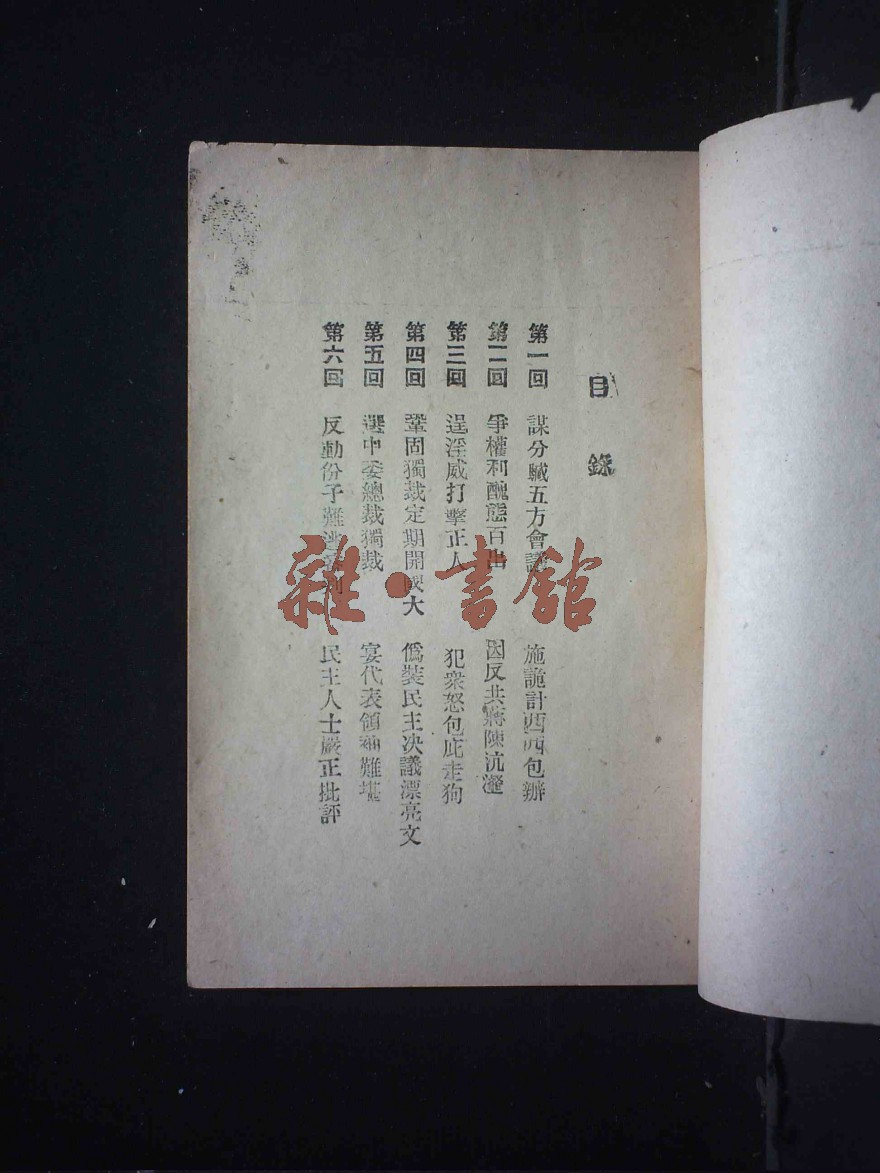 目錄
第一回 謀分贓五方會議 施詭計西西包辦
第二回 爭權利醜態百出 因反共蔣陳沆瀣
第三回 逞淫威打擊正人 犯衆怒包庇走狗
第四回 鞏固獨裁定期開國大 僞裝民主决議漂亮文
第五回 選中委總裁獨裁 宴代表領袖難堪
第六回 反動份子難逃 民主人士嚴正批評
雜·書館